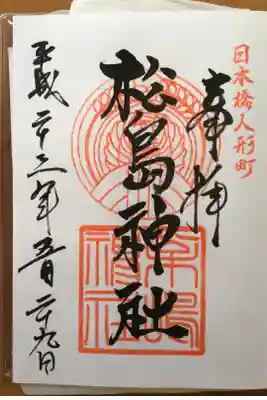 日本橋人形町
奉拝
松島神社
松嶋神社
平成二十三年五月二十九日